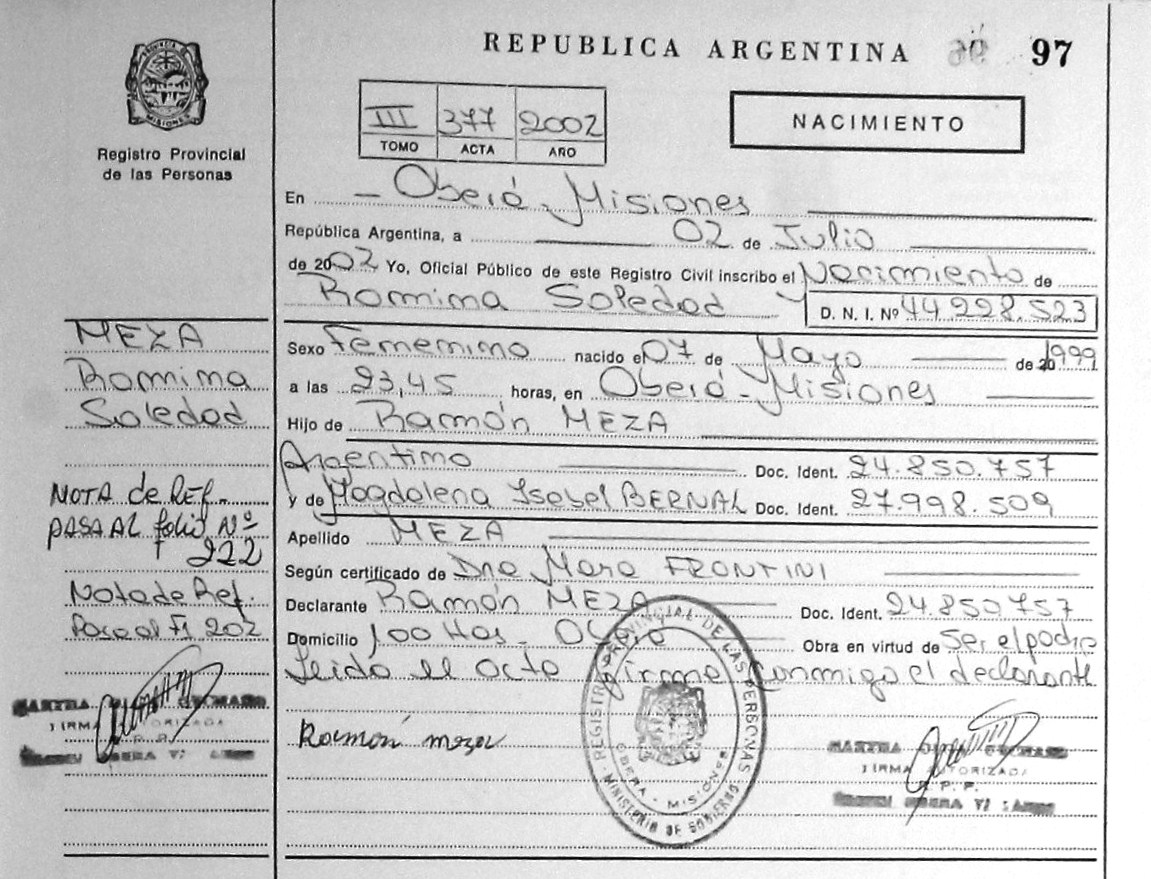 REPUBLICA ARGENTINA 96 97
PROVINCIA DE MISIONES
Registro Provincial
de las Personas
III 377 2002
TOMO ACTA AÑO
NACIMIENTO
En - Oberá - Misiones
República Argentina, a 02 de Julio
de 2002 Yo, Oficial Público de este Registro Civil inscribo el Nacimiento de
Romina Soledad D. N. I. Nº 44 228.523
Sexo Femenino nacido el 07 de Mayo de 20 1999
a las 23,45 horas, en Oberá - Misiones
Hijo de Ramón MEZA
Argentino Doc. Ident. 24.850.757
y de Magdalena Isabel BERNAL Doc. Ident. 27.998.509
Apellido MEZA
Según certificado de Dra Mara FRONTINI
Declarante Ramón MEZA Doc. Ident. 24.850757
Domicilio 100 Has - Oberá Obra en virtud de Ser el padre
Leido el acta firma conmigo el declarante
Ramón meza
MEZA
Romina
Soledad
NOTA de REF.
PASA AL folio Nº
222
Nota de Ref.
Pasa al Fº 202
MARTHA
FIRMA AUTORIZADA
R. P. P.
REGISTRO PROVINCIAL DE LAS PERSONAS
OBERA - MISIONES
MINISTERIO DE GOBIERNO
MARTHA
FIRMA AUTORIZADA
R. P. P.